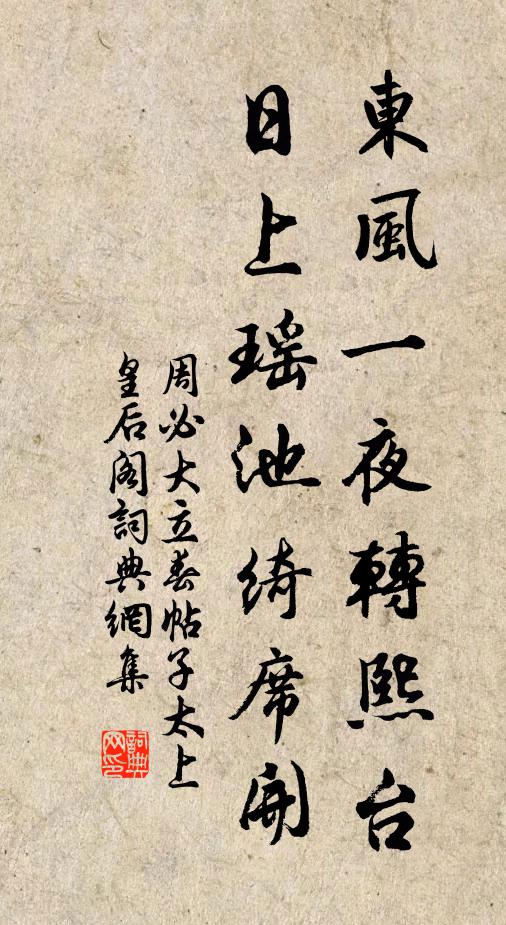 東風一夜轉熙台
日上瑶池綺席開
周必大立春帖子太上
皇后阁詞典網集
詞典
网印